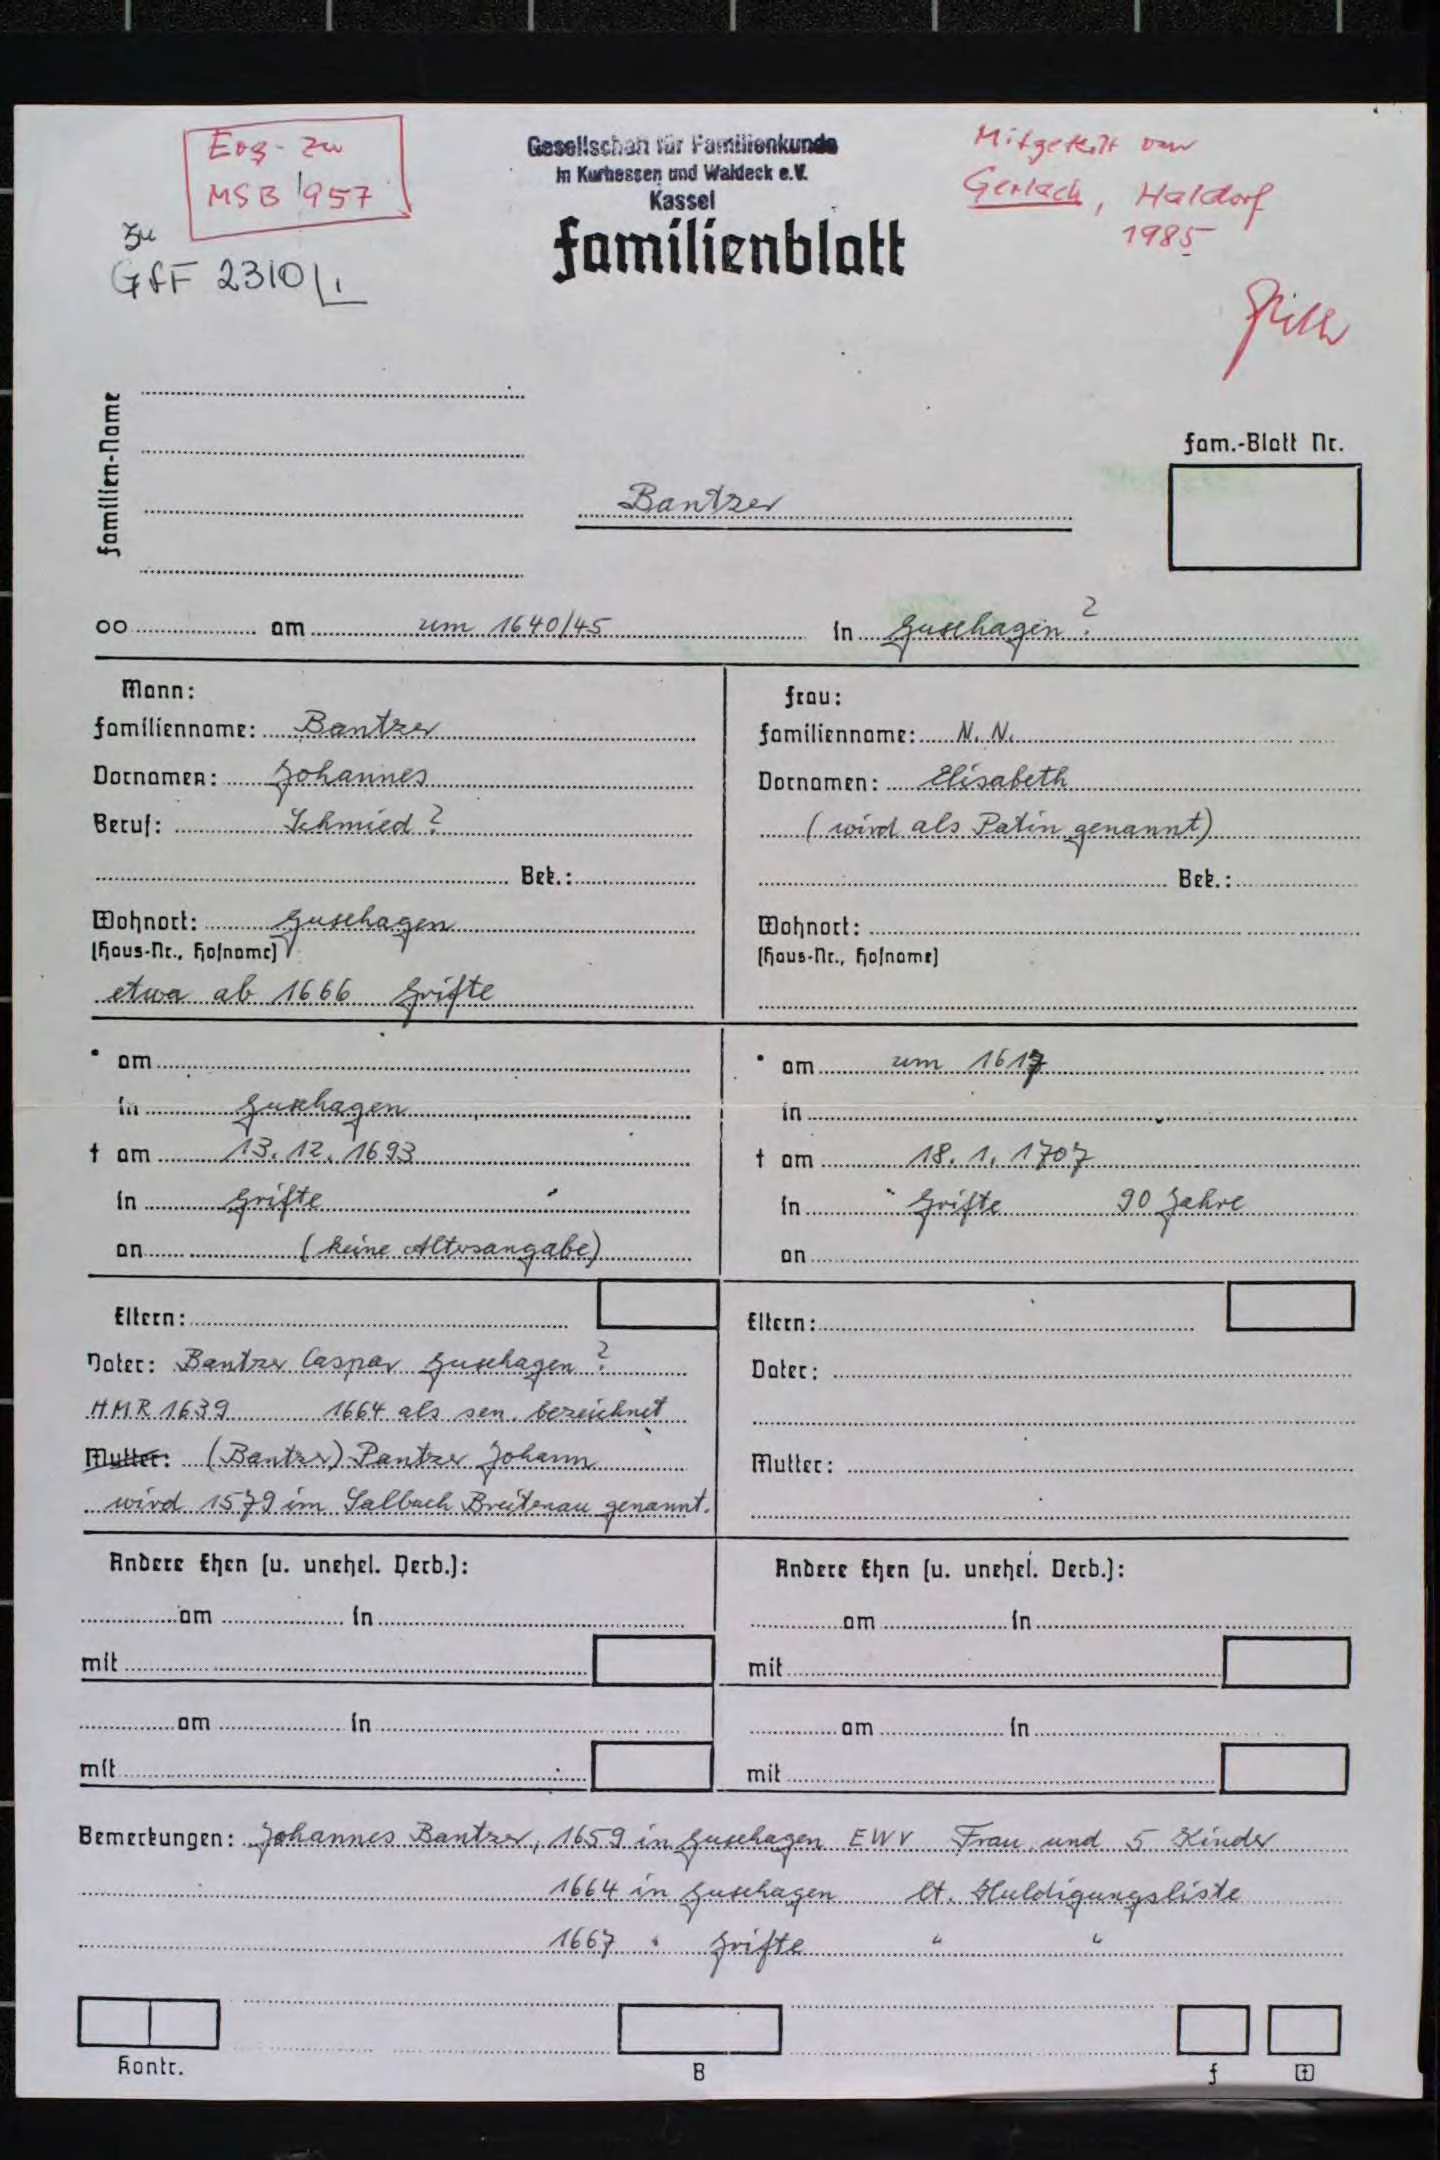 Erg. zu
MSB 957
zu
GfF 2310/1
Gesellschaft für Familienkunde
in Kurhessen und Waldeck e.V.
Kassel
Familienblatt
Mitgeteilt von
Gerlach, Haldorf
1985
Familien-Name
Bantzer
Fam.-Blatt Nr.
oo am um 1640/45 in Guxhagen ?
Mann:
Familienname: Bantzer
Vornamen: Johannes
Beruf: Schmied ?
Bek.:
Wohnort: Guxhagen
(Haus-Nr., Hofname)
etwa ab 1666 Grifte
Frau:
Familienname: N. N.
Vornamen: Elisabeth
(wird als Patin genannt)
Bek.:
Wohnort:
(Haus-Nr., Hofname)
* am
in Guxhagen
† am 13. 12. 1693
in Grifte
an (keine Altersangabe)
* am um 1617
in
† am 18. 1. 1707
in Grifte 90 Jahre
an
Eltern:
Vater: Bantzer Caspar Guxhagen ?
HMR 1639 1664 als sen. bezeichnet
Mutter: (Bantzer) Pantzer Johann
wird 1579 im Salbuch Breitenau genannt.
Eltern:
Vater:
Mutter:
Andere Ehen (u. unehel. Verb.):
am in
mit
am in
mit
Andere Ehen (u. unehel. Verb.):
am in
mit
am in
mit
Bemerkungen: Johannes Bantzer, 1659 in Guxhagen EWV Frau und 5 Kinder
1664 in Guxhagen lt. Huldigungsliste
1667 " Grifte " "
Kontr.
B
f